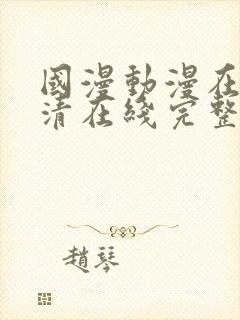 國漫動漫在
清在綫完整
趙琴